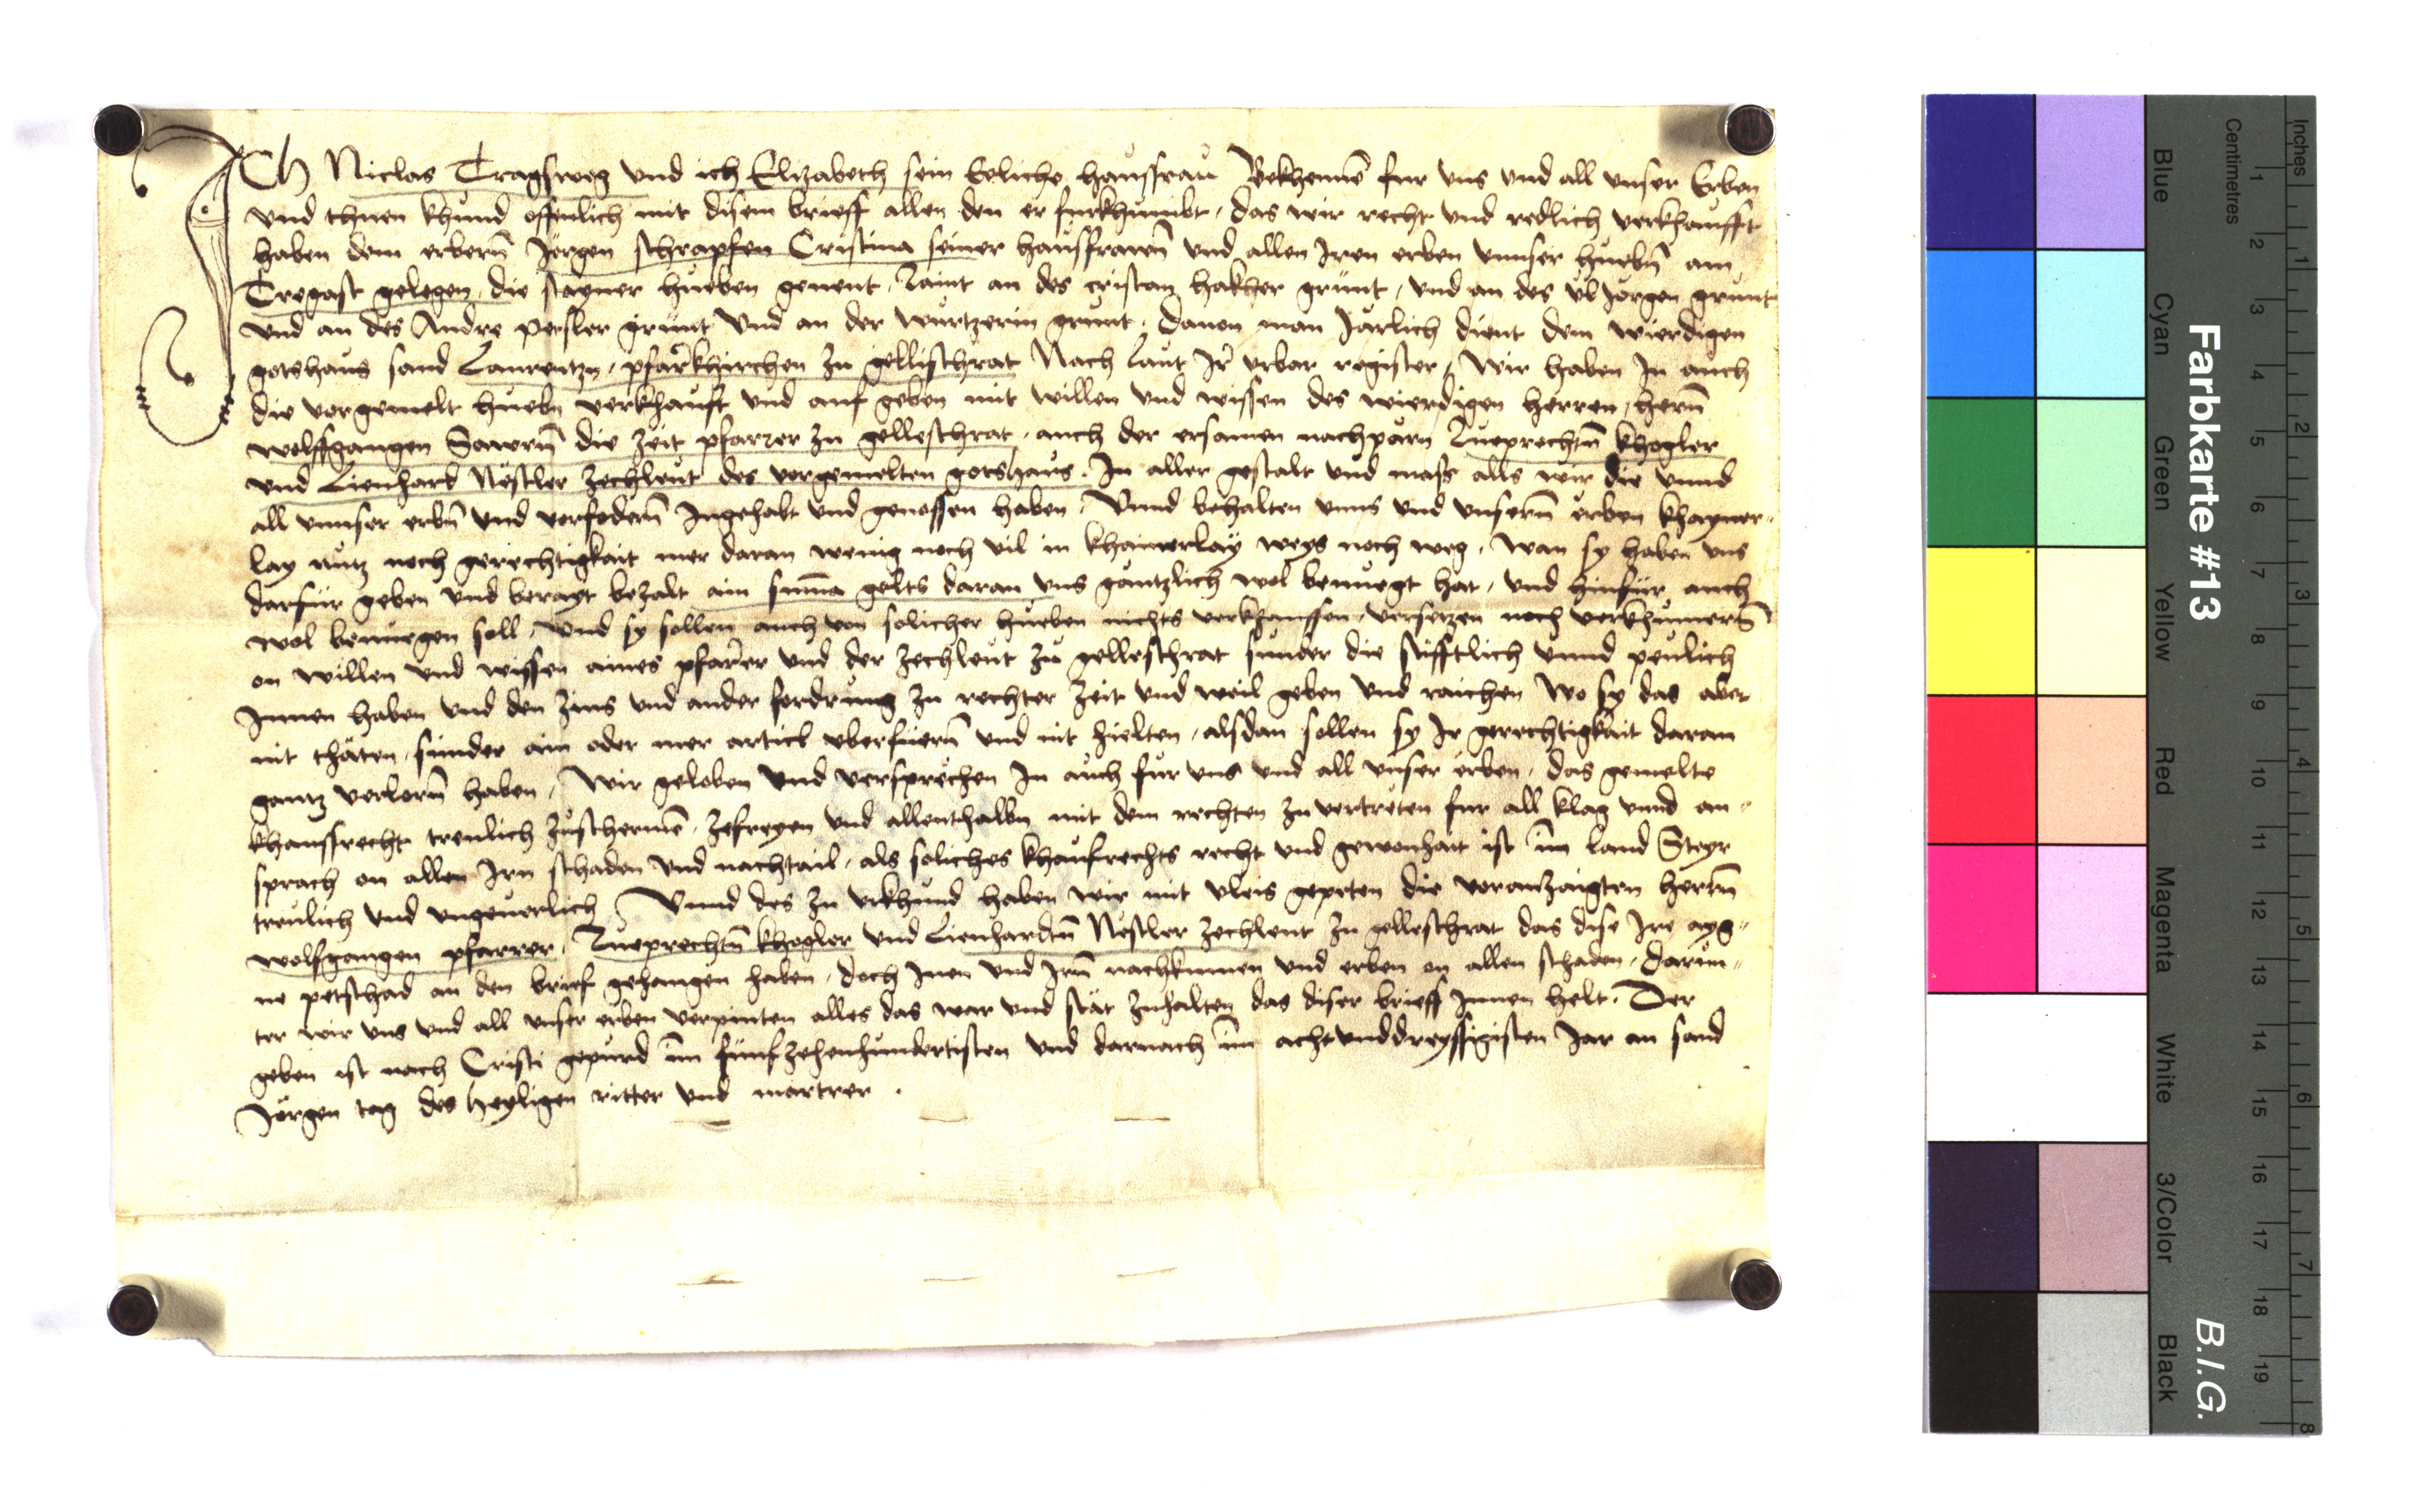 ICh Niclas Tragsweg vnd ich Elizabeth sein Eeliche haussfrau Bekhennē fur vns vnd all vnser Erben
vnd thuen khund offenlich mit disem brieff allen den er furkhumbt, das wir recht vnd redlich verkhaufft
haben dem erbern̄ Jorgen schrapfen Cristina seiner hausfrawn̄ vnd allen Iren erben vnnser huebn̄ am
Tregast gelegen, die stayner hueben genent, Raint an des cristan hakher grünt, vnd an des Jorgen grunt
vnd an des Andre pesler grunt vnd an der wurtzerin grunt, dauon man Järlich dient dem wierdigen
gotshaus sand Laurentzn, pfarrkhirchen zu gellischrat Nach laut Ir vrbar register, Wir haben In auch
die vorgemelt huebn verkhauft vnd auf geben mit willen vnd wissen des wierdigen herren, hern̄
wolffgangen Sawrn̄ die zeit pfarrer zu gelleschrat, auch der ersamen nachparn Rueprechtn̄ khogler
vnd Lienhard Nëstler zechleut des vorgemelten gotshaus. In aller gestalt vnd mass alls wir die vnnd
all vnnser erbn̄ vnd vorfodern̄ Ingehabt vnd genossen haben, Vnnd behalten vnns vnd vnsern̄ erben khayner-
lay nutz noch gerechtigkait mer daran wenig noch vil in khainerlaÿ weys noch weg, wan sy haben vns
darfür geben vnd berayt bezalt ain sum̄a gelts daran vns gäntzlich wol benuegt hat, vnd hinfür auch
wol benuegen soll, vnd sy sollen auch von solicher hueben nichts verkhauffen, versetzen noch verkhumern̄
on willen vnd wissen aines pfarrer vnd der zechleut zu gelleschrat sunder die stifftlich vnnd peulich
Innen haben vnd den zins vnd ander fordrung zu rechter zeit vnd weil geben vnd raichen Wo sy das aber
nit thäten, sunder ain oder mer artickl vberfuern̄ vnd nit hielten, alsdan sollen sy Ir gerechtigkait daran
gantz verlorn̄ haben, Wir geloben vnd versprechen In auch fur vns vnd all vnser erben, das gemelte
khauffrecht treulich zuschermē, zefreyen vnd allenthalbn mit dem rechten zu vertreten fur all klag vnnd an-
sprach on allen Irn schaden vnd nachtail, als soliches khaufrechts recht vnd gewonhait ist im land Steyr
treulich vnd vngeuerlich Vnnd des zu vrkhund haben wir mit vleis gepeten die voranzaigten herrn̄
wolfgangen pfarrer, Rueprechtn̄ khogler vnd Lienhardtn̄ Nëstler zechleut zu gelleschrat das dise Ire ayg-
ne petschad an den brief gehangen haben, doch Inen vnd Irn̄ nachkumen vnd erben on allen schaden, darun-
ter wir vns vnd all vnser erben verpinten alles das war vnd stät zuhalten das diser brieff Innen helt. Der
geben ist nach Cristi gepurd im funfzehenhundertisten vnd darnach im achtvnddreyssigisten Jar an sand
Jörgen tag des heyligen ritter vnd martrer.
Farbkarte #13
B.I.G.
Centimetres
Inches
Blue
Cyan
Green
Yellow
Red
Magenta
White
3/Color
Black
1 2 3 4 5 6 7 8 9 10 11 12 13 14 15 16 17 18 19
1 2 3 4 5 6 7 8